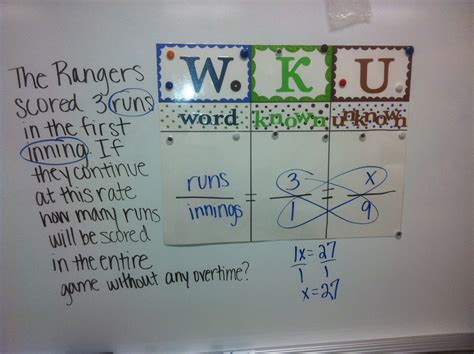 The Rangers
scored 3 runs
in the first
inning. If
they continue
at this rate
how many runs
will be scored
in the entire
game without any overtime?
W K U
word known unknown
runs = 3 = x
innings 1 9
1x = 27
1 1
x = 27